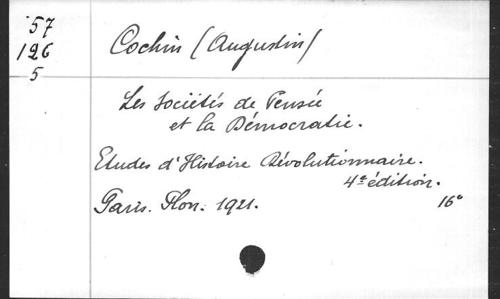 57
126
5
Cochin (Augustin)
Les Sociétés de Pensée
et la Démocratie.
Etudes d'Histoire Révolutionnaire.
4e édition.
Paris. Plon. 1921.
16°